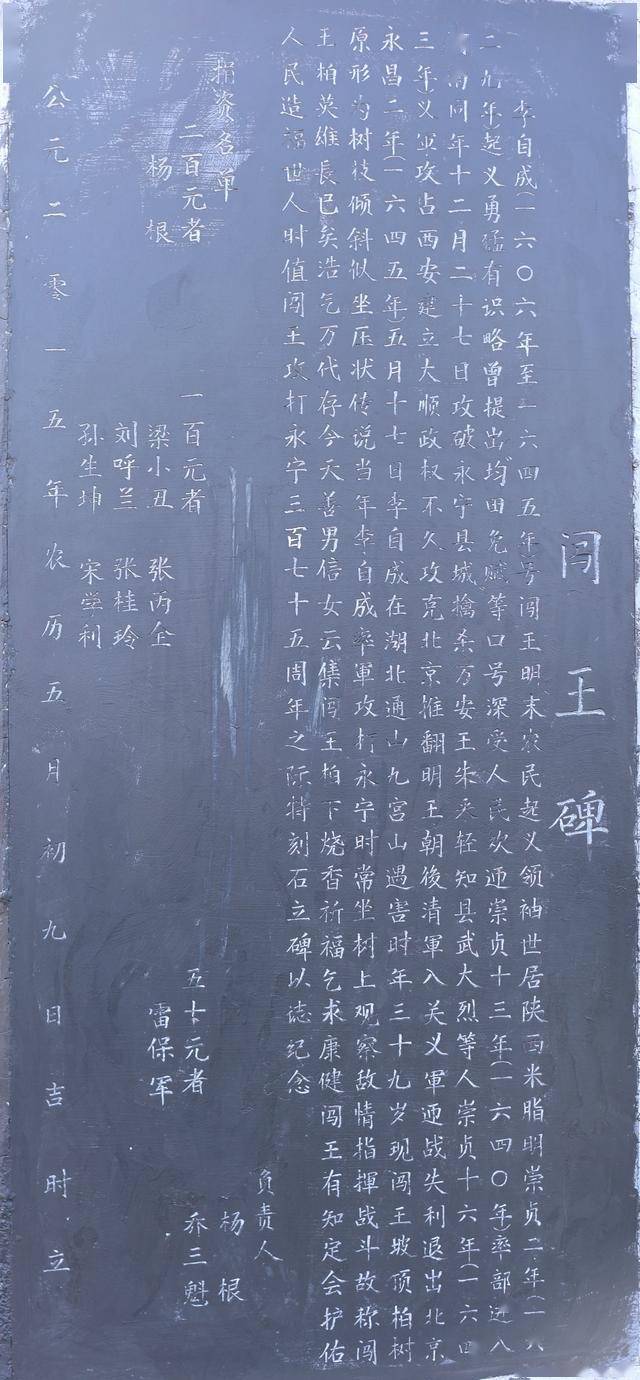 闯王碑
李自成(一六〇六年至一六四五年)号闯王明末农民起义领袖世居陕西米脂明崇贞二年(一六
二九年)起义勇猛有识略曾提出均田免赋等口号深受人民欢迎崇贞十三年(一六四〇年)率部进入
河南同年十二月二十七日攻破永宁县城擒杀万安王朱采轻知县武大烈等人崇贞十六年(一六四
三年)义軍攻占西安建立大顺政权不久攻克北京推翻明王朝後清軍入关义軍迎战失利退出北京
永昌二年(一六四五年)五月十七日李自成在湖北通山九宫山遇害时年三十九岁现闯王坡顶柏树
原形为树枝倾斜似坐压状传说当年李自成率軍攻打永宁时常坐树上观察敌情指揮战斗故称闯
王柏英雄長已矣浩气万代存今天善男信女云集闯王柏下烧香祈福乞求康健闯王有知定会护佑
人民造福世人时值闯王攻打永宁三百七十五周年之际特刻石立碑以誌纪念
负责人
杨根
乔三魁
捐资名单
二百元者
杨根
一百元者
梁小丑 张丙全
刘呼兰 张桂玲
孙生坤 宋学利
五十元者
雷保军
公元二零一五年农历五月初九日吉时立